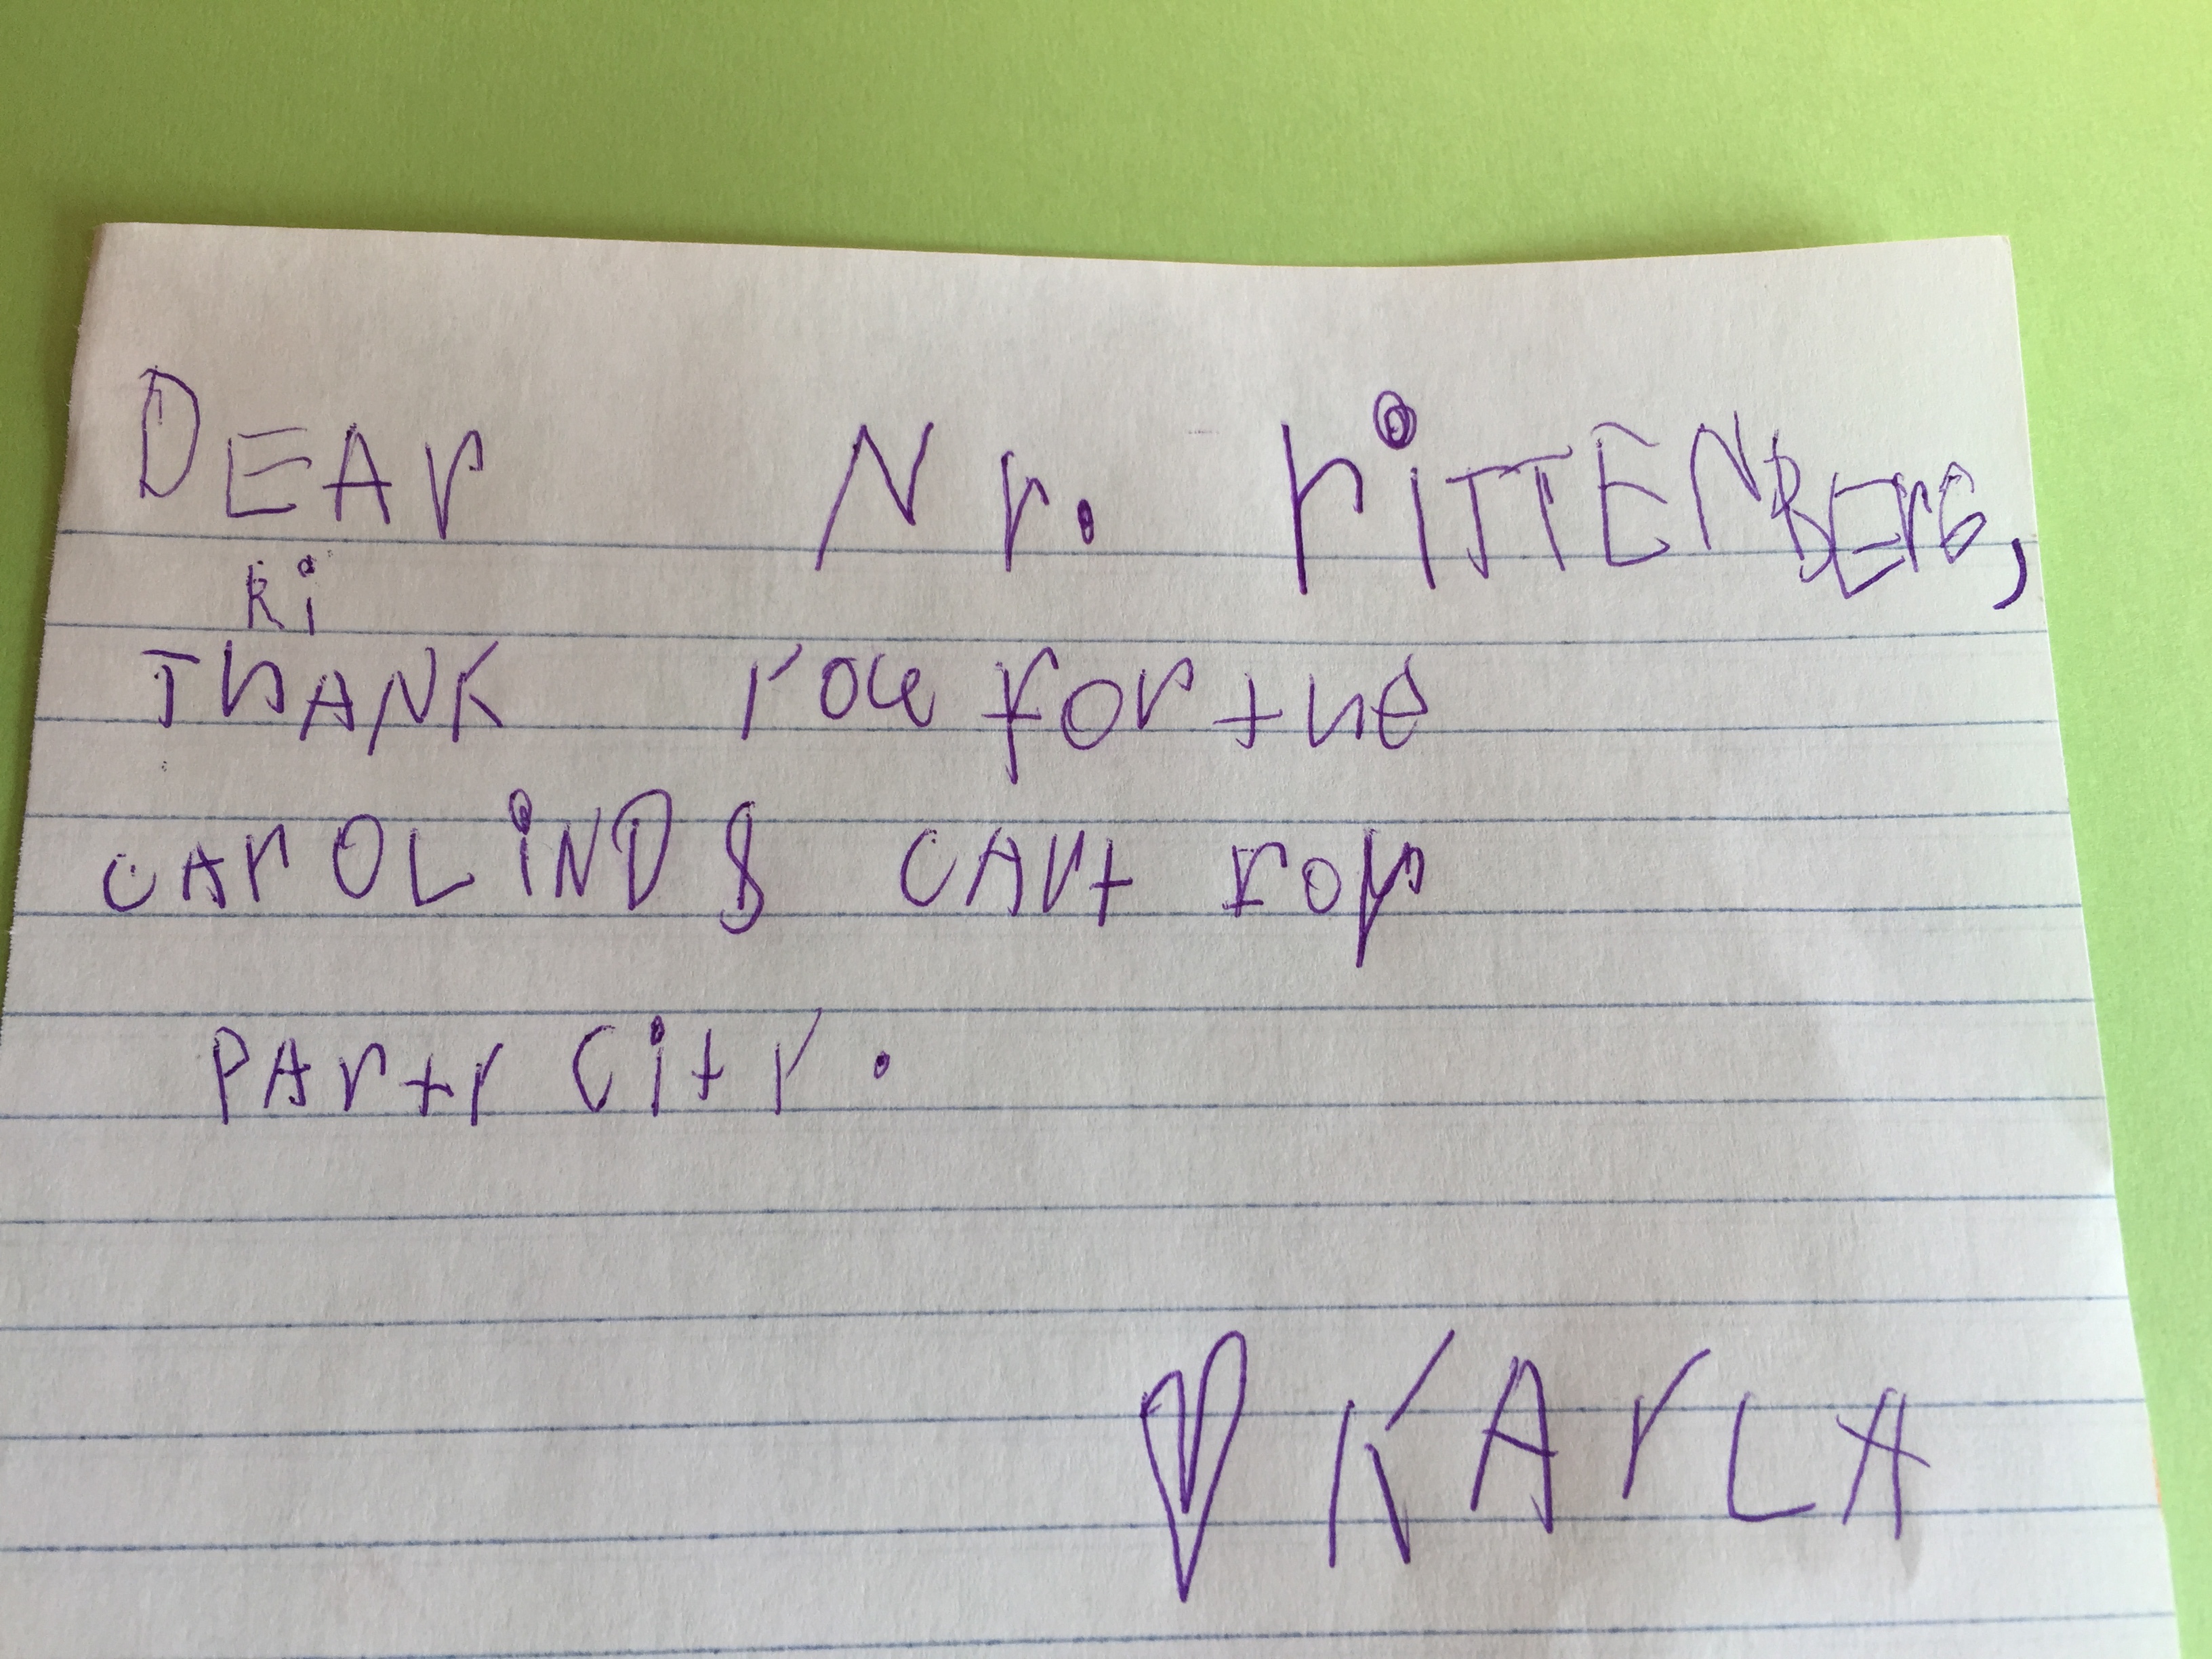 DEAr Nr. riTTENBErG,
Ri
THANK You for the
CArOLIND& CArt for
PArty City.
♡ KArLA